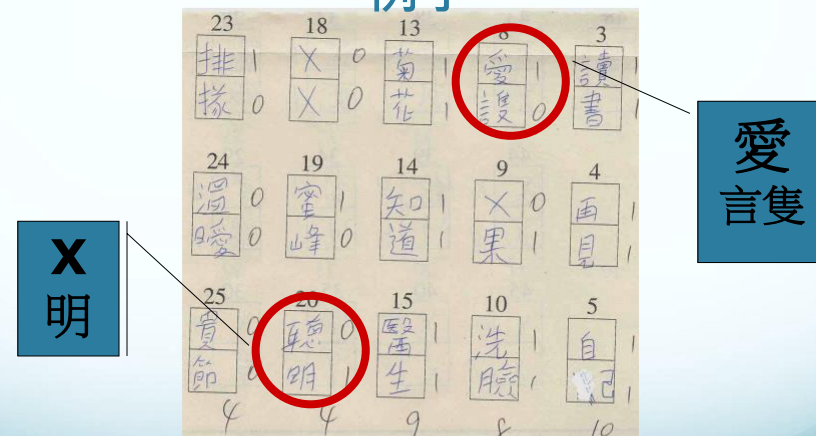 例子
23 18 13 8 3
排 1 X 0 菊 1 愛 1 讀 1
0 X 0 花 1 謢 0 書 1
24 19 14 9 4
0 蜜 1 知 1 X 0 再 1
曖 0 峰 0 道 1 果 1 見 1
25 20 15 10 5
0 0 醫 1 洗 1 自 1
節 0 明 1 生 1 臉 1 己 1
4 4 9 8 10
愛
言隻
X
明